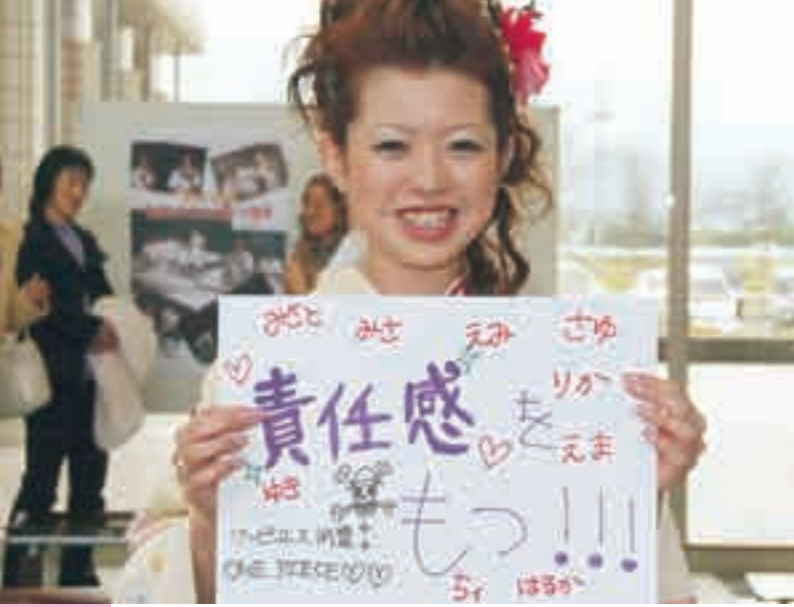 みさと みさ えみ さゆ
りか
責任感を
えま
ゆき
もつ!!!
ONE PIECE♡♡
ちぃ はるか